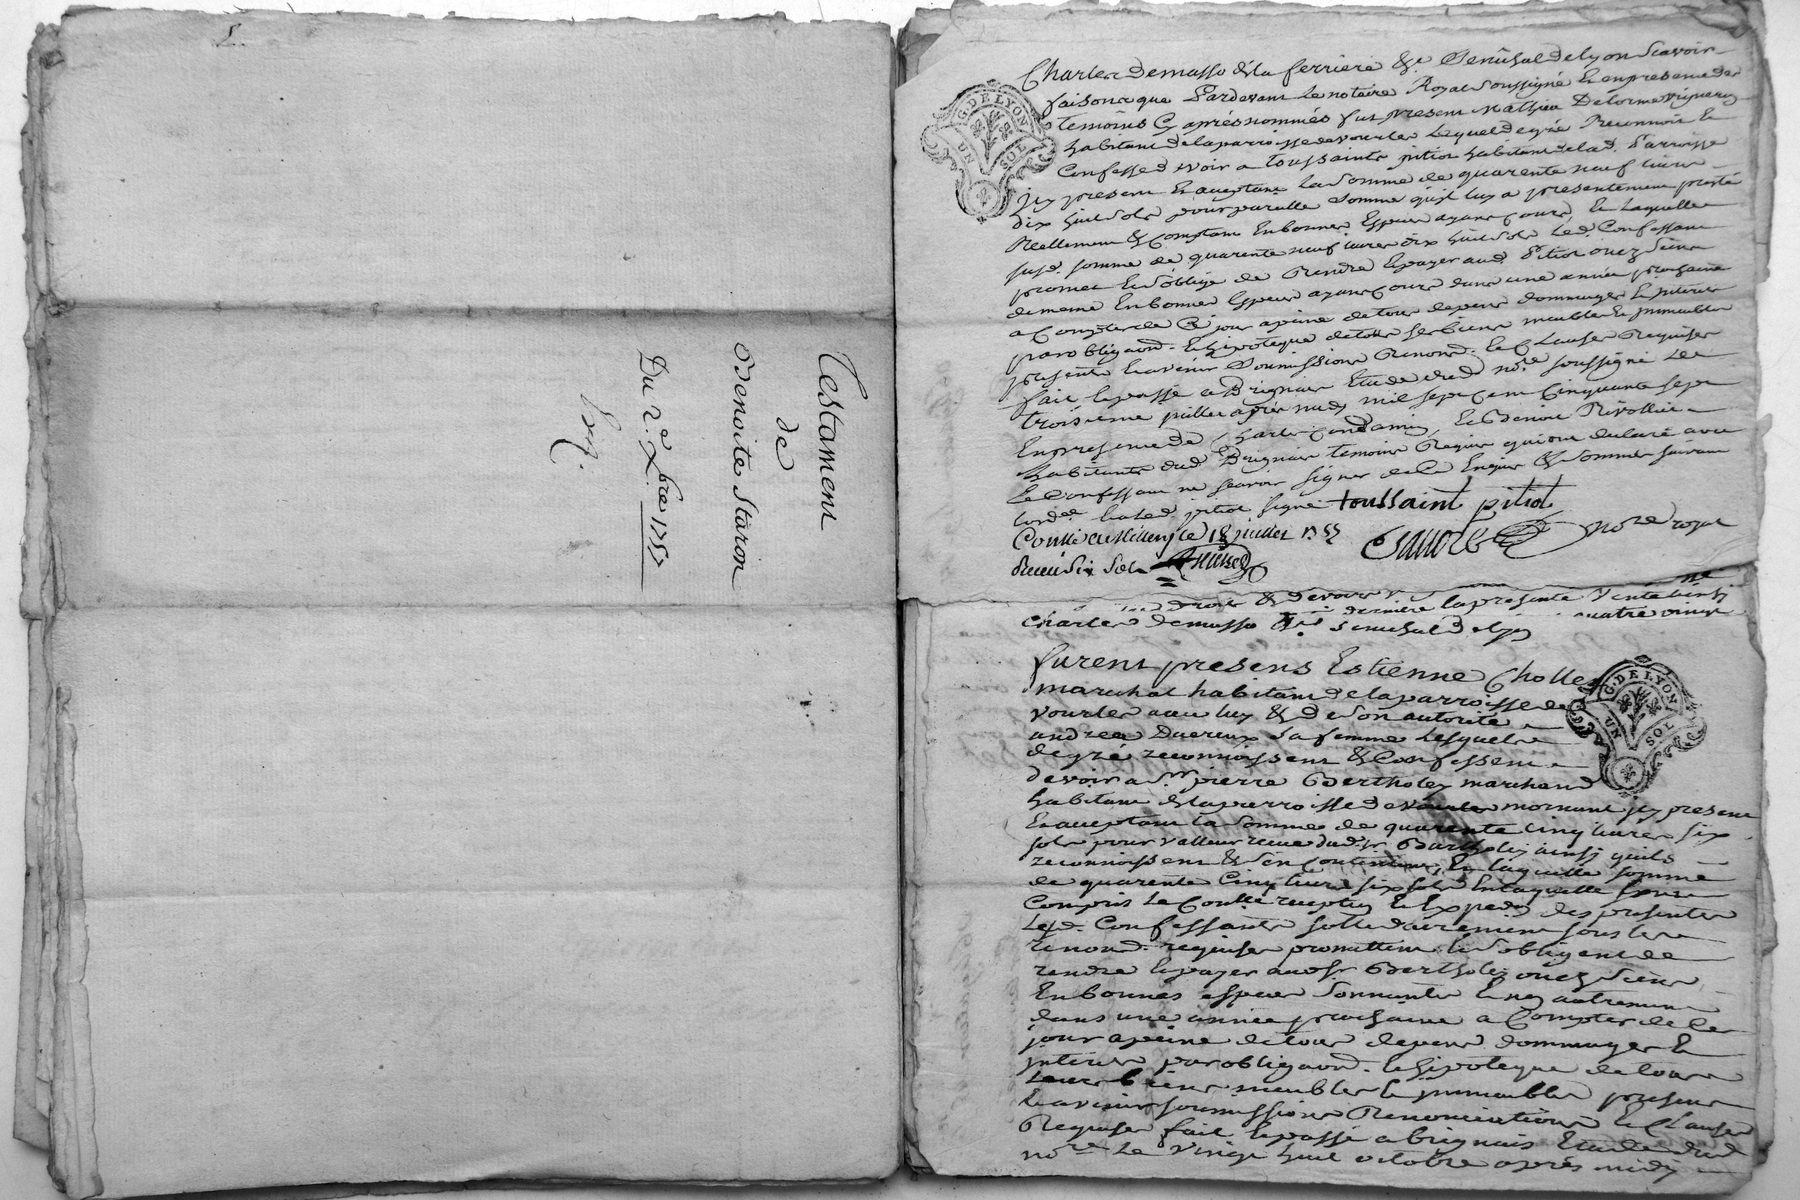 Testament
de
Benoite Staron
Du 2e. xbre 1757
G. DE LYON
UN SOL
Charles demasso de la ferriere &c. Senéchal de lyon Scavoir
faisons que Pardevant le notaire Royal soussigné Et en presence des
temoins Cy aprés nommés fut present Mathieu Delorme vigneron
habitant de la parroisse de vourles Lequel de gré Reconnoit Et
Confesse devoir a toussaints pitiot habitant de lad. Parroisse
jcy present Et aceptant La Somme de quarente neuf livres
dix huit sols pour pareille somme qu'il luy a presentement presté
Reellement & Comptant En bonnes Especes ayant Cours, Et Laquelle
susd. somme de quarente neuf livres dix huit sols Led. Confessant
promet Et s'oblige de Rendre Et payer aud. Pitiot ou es Siens
de meme En bonnes Especes ayant Cours dans une année prochaine
a Compter de Ce jour a peine de tous depens dommages Et Interets
par obligaon. Et hipoteque de tous ses biens meubles Et jmmeubles
presents Et avenir Soumissions Renond. Et Clauses Requises
fait Et passé a Brignais Etude dud. nore. soussigné Le
troisieme juillet aprés midy mil sept Cent Cinquante sept
En presence de Charles Condamin, Et Benoit Rivollier
habitants dud. Brignais temoins Requis qui ont declaré avec
le Confessant ne scavoir signer de Ce Enquis & Sommés suivant
lordce. Et a led. pitiot signé toussaint pitiot
Conllé a Millery le 18 juillet 1757
Receu six sols
nore royal
droits & devoirs
derniere la presente Vente
quatre vingt
Charles demasso &c. Senechal de lyon
furent presens Estienne Chollet
marechal habitant de la parroisse de
vourles avec luy & de son autorité
andrée Ducreux sa femme Lesquels
de gré reconnoissent & Confessent
devoir a Sr. pierre Bertholey marchand
habitant de la parroisse de mornant jcy present
Et aceptant la somme de quarente Cinq livres six
sols pour valleur receue dud. Sr. Bertholey ainsi quils
reconnoissent & s'en Contentent, Et laquelle somme
de quarente Cinq livres six sols En laquelle sont
Compris Le Conlle reception Et Expedon des presentes
Lesd. Confessants sollidairement sous les
renond. requises promettent Et s'obligent de
rendre Et payer aud. Sr. Bertholey ou es siens
En bonnes especes sonnantes Et non autrement
dans une année prochaine a Compter de Ce
jour a peine de tous depens dommages Et
jnterets par obligaon. Et hipoteque de tous
Leurs biens meubles Et jmmeubles presens
Et avenir soumissions Renonciations Et Clauses
Requises fait Et passé a brignais Etude dud.
nore. Le vingt huit octobre aprés midy
G. DE LYON
UN SOL